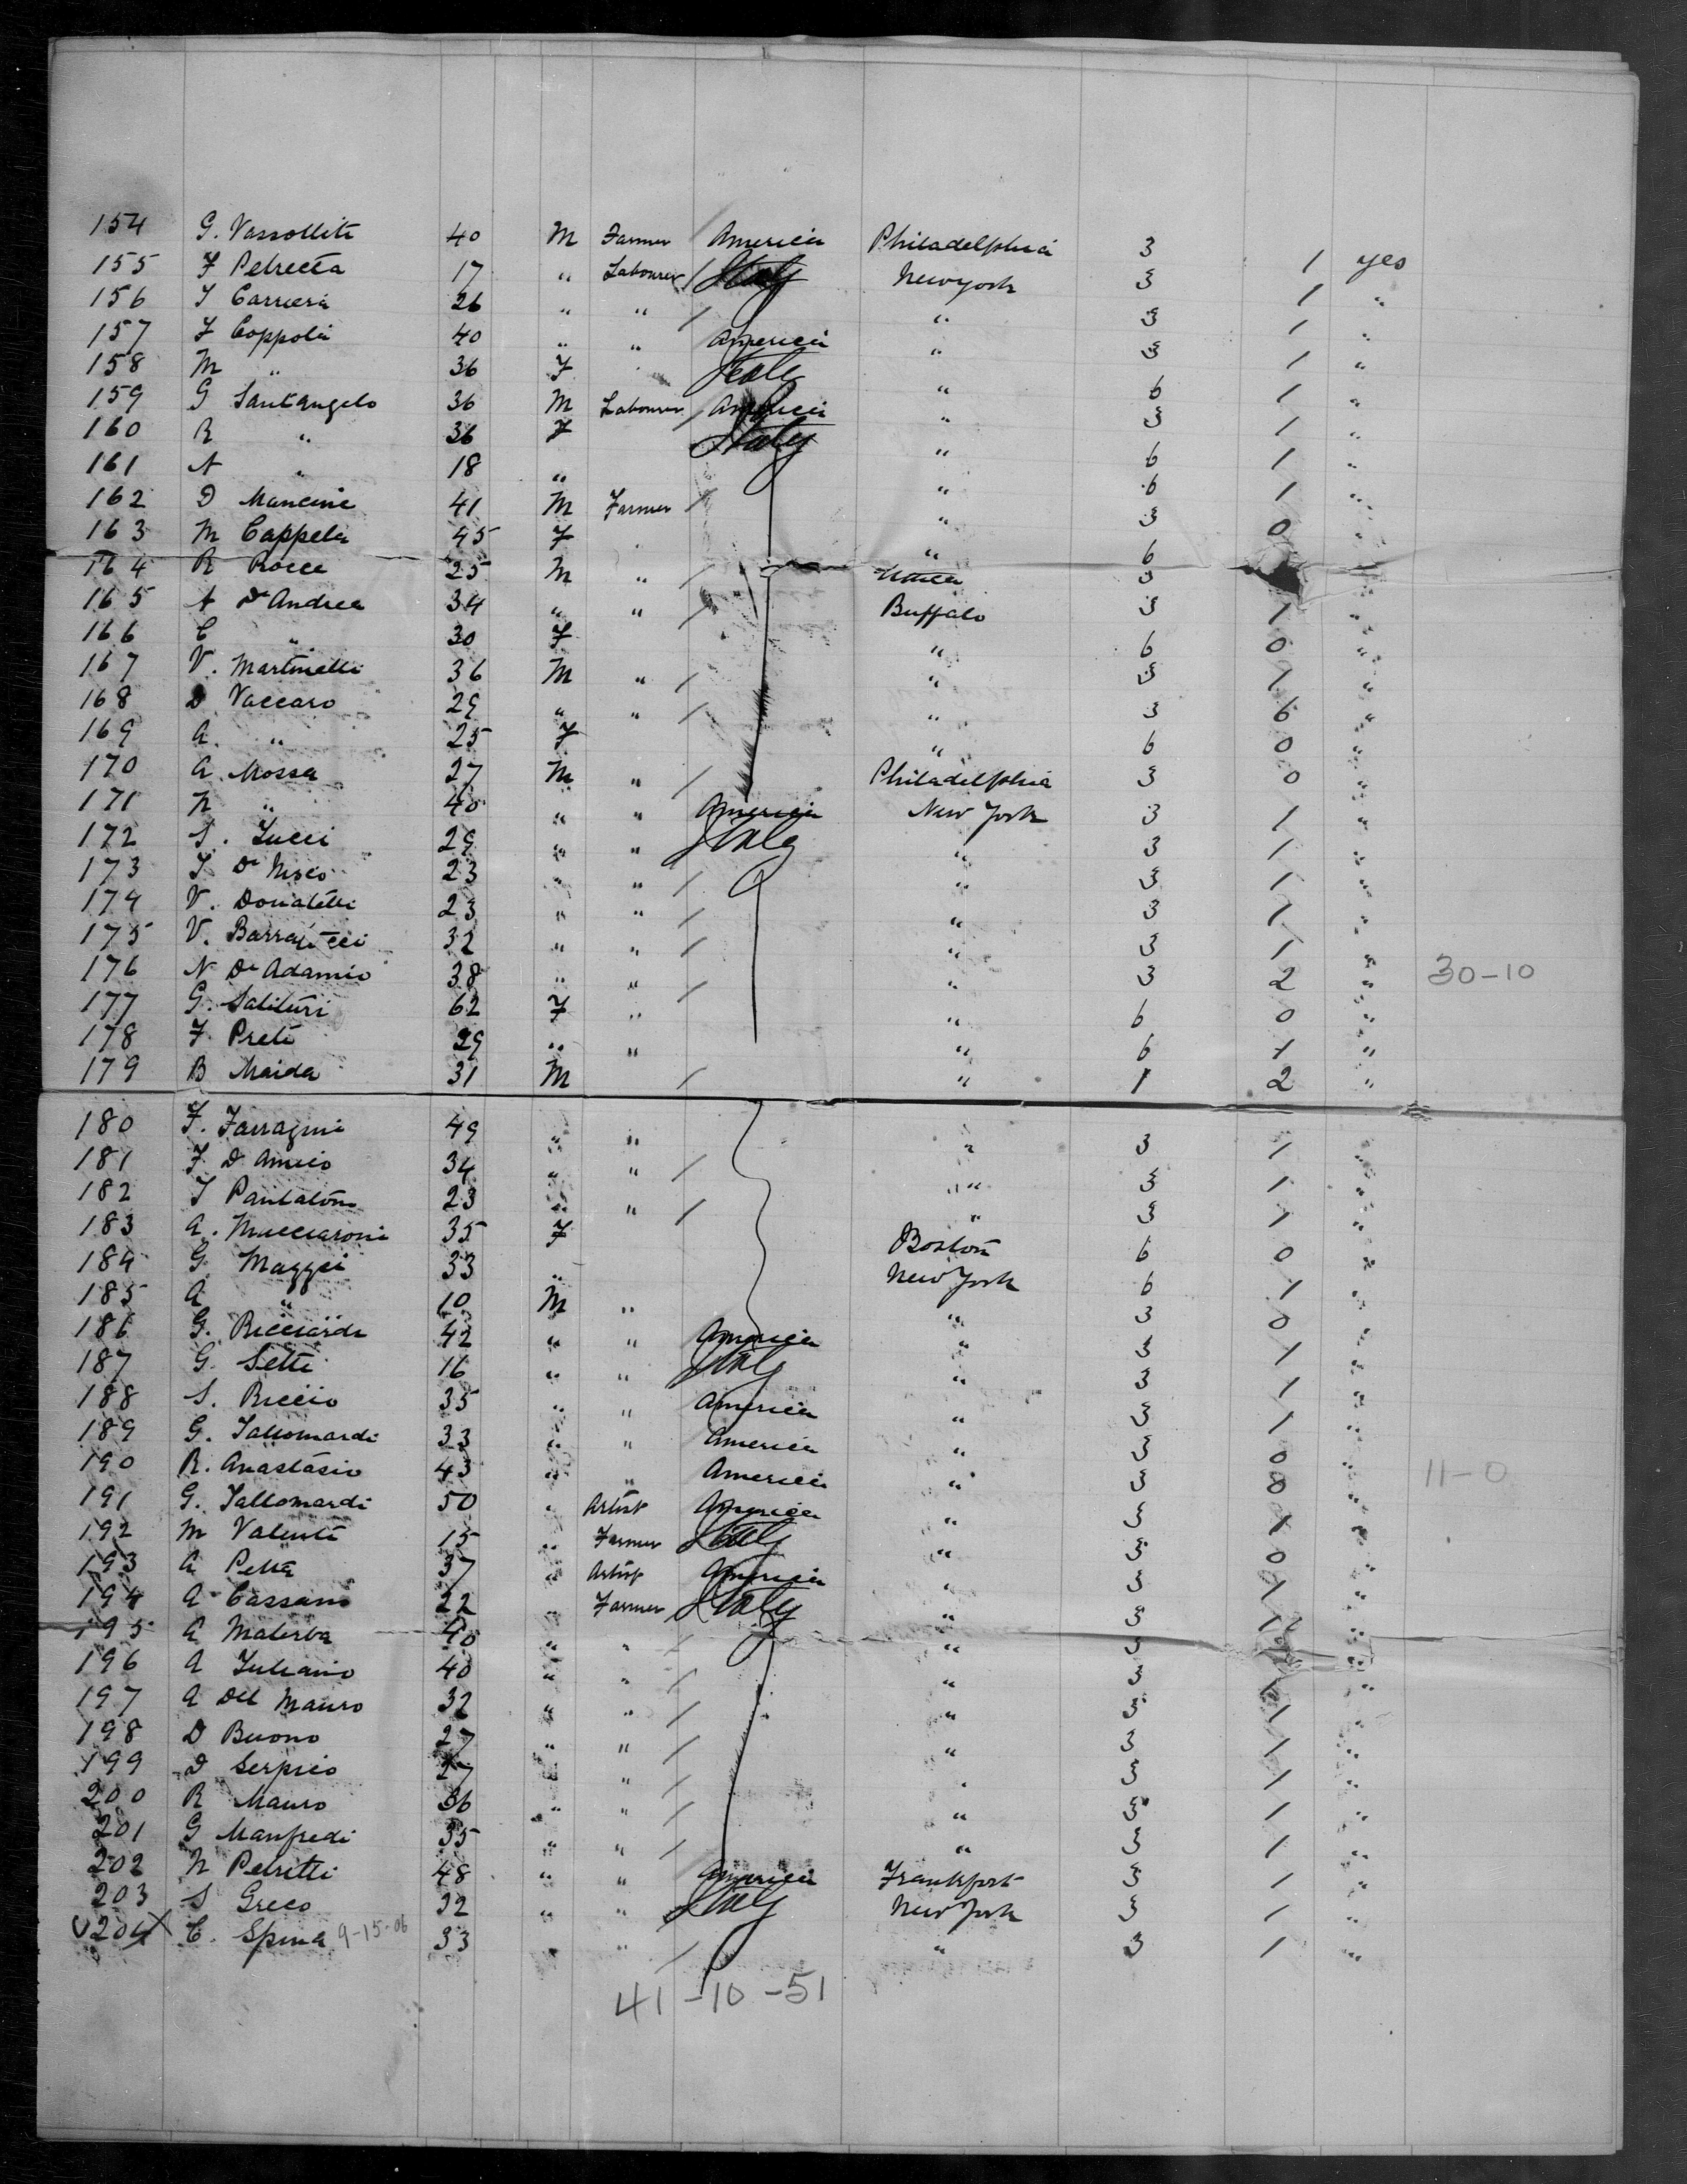 154 G. Vassolliti 40 M Farmer America Philadelphia 3 1 yes
155 F Petrecca 17 " Labourer / Italy New york 3 1 "
156 F Carriera 26 " " / " 3 1 "
157 F Coppola 40 " " America " 3 1 "
158 M " 36 F Italy " 6 1 "
159 G Santangelo 36 M Labourer / America " 3 1 "
160 R " 36 F Italy " 6 1 "
161 N " 18 " " 6 1 "
162 D Mancini 41 M Farmer / " 3 0 "
163 M Cappela 45 F " 6
164 R Rocce 25 M " / Utica 3
165 A De Andrea 34 " " / Buffalo 3 1 "
166 C " 30 F " 6 0 "
167 V. Martinelli 36 M " / " 3 1 "
168 D Vaccaro 29 " " / " 3 6 "
169 A. " 25 F " 6 0 "
170 A Mossa 27 M " / Philadelphia 3 0 "
171 N " 40 " " America New York 3 1 "
172 S. Lucci 29 " " Italy " 3 1 "
173 F De Nisco 23 " " / " 3 1 "
174 V. Donatelli 23 " " / " 3 1 "
175 V. 32 " " / " 3 1 "
176 N De Adamio 38 " " / " 3 2 " 30-10
177 G. Salituri 62 F " " 6 0 "
178 F. Preti 29 " " " 6 1 "
179 B Maida 31 M / " 1 2 "
180 F. Farragni 49 " " " 3 1 "
181 F. D Amico 34 " " / " 3 1 "
182 F Pantalone 23 " " / " 3 1 "
183 A. Mucciaroni 35 F Boston 6 0 "
184 G. Maggei 33 " New York 6 1
185 A " 10 M " " 3 0 "
186 G. Ricciardi 42 " " America " 3 1 "
187 G. Setti 16 " " Italy " 3 1 "
188 S. Riccio 35 " " America " 3 1 "
189 G. Tallomardi 33 " " America " 3 0 "
190 R. Anastasio 43 " " America " 3 8 11-0
191 G. Tallomardi 50 " Artist America " 3 1 "
192 M Valenti 15 " Farmer Italy " 3 0 "
193 A Petta 37 " Artist America " 3 1 "
194 A Cassano 22 " Farmer Italy " 3 1 "
195 A Malerba 40 " " / " 3
196 A Juliano 40 " " / " 3 1 "
197 A Del Mauro 32 " " / " 3 1 "
198 D Buono 27 " " / " 3 1 "
199 D Serpico 27 " " / " 3 1 "
200 R Mauro 36 " " / " 3 1 "
201 G Manfredi 35 " " / " 3 1 "
202 N Petritti 48 " " America Frankfort 3 1 "
203 S Greco 32 " " Italy New York 3 1 "
204 C. Spina 9-15-06 33 " " / " 3 1 "
41-10-51